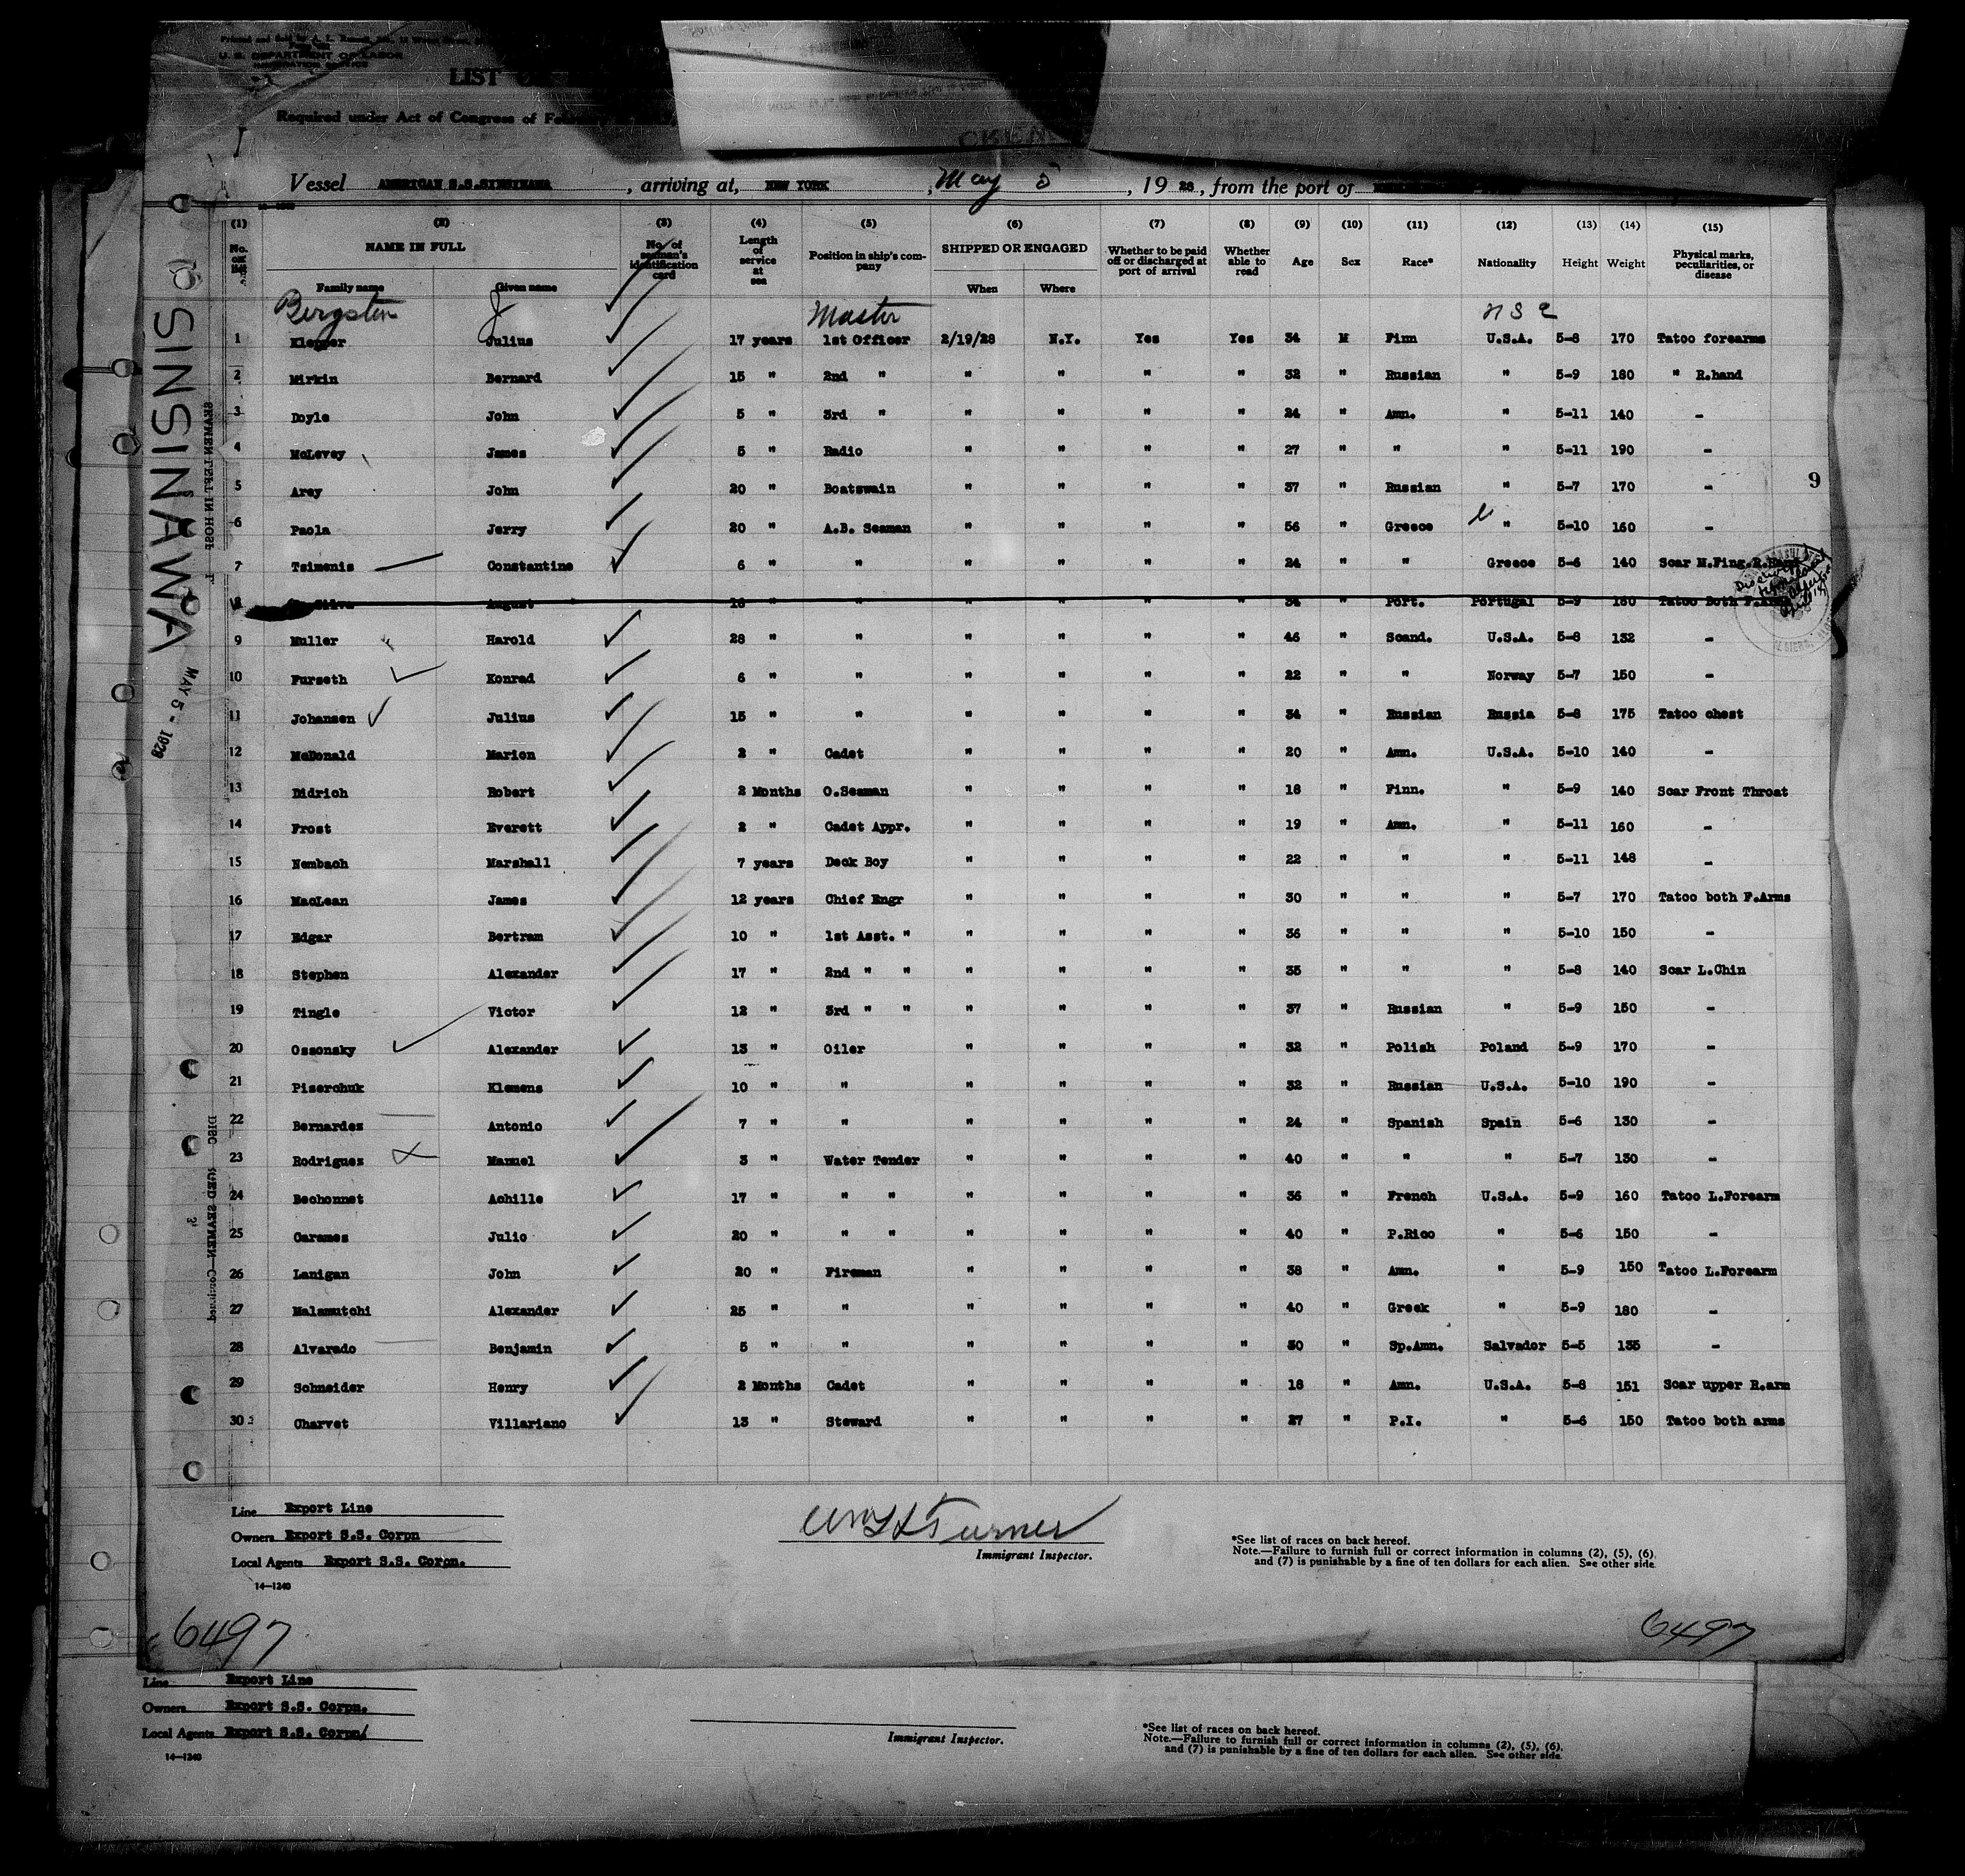 U. S. DEPARTMENT OF LABOR
LIST
Required under Act of Congress of
Vessel AMERICAN S.S.SINSINAWA, arriving at, NEW YORK, May 5, 1928, from the port of
(1) (2) (3) (4) (5) (6) (7) (8) (9) (10) (11) (12) (13) (14) (15)
No. on list NAME IN FULL Family name Given name No. of seaman's identification card Length of service at sea Position in ship's company SHIPPED OR ENGAGED When Where Whether to be paid off or discharged at port of arrival Whether able to read Age Sex Race* Nationality Height Weight Physical marks, peculiarities, or disease
Bergsten J Master
1 Klepper Julius 17 years 1st Officer 2/19/28 N.Y. Yes Yes 34 M Finn U.S.A. 5-8 170 Tatoo forearms
2 Mirkin Bernard 15 " 2nd " " " " " 32 " Russian " 5-9 180 " R.hand
3 Doyle John 5 " 3rd " " " " " 24 " Amn. " 5-11 140 -
4 McLevey James 5 " Radio " " " " 27 " " " 5-11 190 -
5 Arey John 20 " Boatswain " " " " 37 " Russian " 5-7 170 -
6 Paola Jerry 20 " A.B. Seaman " " " " 56 " Greece " 5-10 160 -
7 Tsimenis Constantine 6 " " " " " " 24 " " Greece 5-6 140 Scar M.Fing.R.Hand
8 August 18 " " " " " " 34 " Port. Portugal 5-9 160 Tatoo Both F.Arms
9 Muller Harold 28 " " " " " " 46 " Scand. U.S.A. 5-8 132 -
10 Furseth Konrad 6 " " " " " " 22 " " Norway 5-7 150 -
11 Johansen Julius 15 " " " " " " 34 " Russian Russia 5-8 175 Tatoo chest
12 McDonald Marion 2 " Cadet " " " " 20 " Amn. U.S.A. 5-10 140 -
13 Didrich Robert 2 Months O.Seaman " " " " 18 " Finn. " 5-9 140 Scar Front Throat
14 Frost Everett 2 " Cadet Appr. " " " " 19 " Amn. " 5-11 160 -
15 Nembach Marshall 7 years Deck Boy " " " " 22 " " " 5-11 148 -
16 MacLean James 12 years Chief Engr " " " " 30 " " " 5-7 170 Tatoo both F.Arms
17 Edgar Bertram 10 " 1st Asst. " " " " " 36 " " " 5-10 150 -
18 Stephen Alexander 17 " 2nd " " " " " " 35 " " " 5-8 140 Scar L.Chin
19 Tingle Victor 12 " 3rd " " " " " " 37 " Russian " 5-9 150 -
20 Ossonsky Alexander 13 " Oiler " " " " 32 " Polish Poland 5-9 170 -
21 Piserchuk Klemens 10 " " " " " " 32 " Russian U.S.A. 5-10 190 -
22 Bernardez Antonio 7 " " " " " " 24 " Spanish Spain 5-6 130 -
23 Rodriguez Manuel 3 " Water Tender " " " " 40 " " " 5-7 130 -
24 Bechonnet Achille 17 " " " " " " " 36 " French U.S.A. 5-9 160 Tatoo L.Forearm
25 Carames Julio 20 " " " " " " " 40 " P.Rico " 5-6 150 -
26 Lanigan John 20 " Fireman " " " " 38 " Amn. " 5-9 150 Tatoo L.Forearm
27 Malamutchi Alexander 25 " " " " " " 40 " Greek " 5-9 180 -
28 Alvarado Benjamin 5 " " " " " " 30 " Sp.Amn. Salvador 5-5 135 -
29 Schneider Henry 2 Months Cadet " " " " 18 " Amn. U.S.A. 5-8 151 Scar upper R.arm
30 Charvet Villariano 13 " Steward " " " " 27 " P.I. " 5-6 150 Tatoo both arms
SINSINAWA
MAY 5 - 1928
9
Line Export Line
Owners Export S.S. Corpn
Local Agents Export S.S. Corpn.
14—1240
Turner
Immigrant Inspector.
*See list of races on back hereof.
Note.—Failure to furnish full or correct information in columns (2), (5), (6), and (7) is punishable by a fine of ten dollars for each alien. See other side.
6497
6497
Line Export Line
Owners Export S.S. Corpn.
Local Agents Export S.S. Corpn/
14—1240
Immigrant Inspector.
*See list of races on back hereof.
Note.—Failure to furnish full or correct information in columns (2), (5), (6), and (7) is punishable by a fine of ten dollars for each alien. See other side.